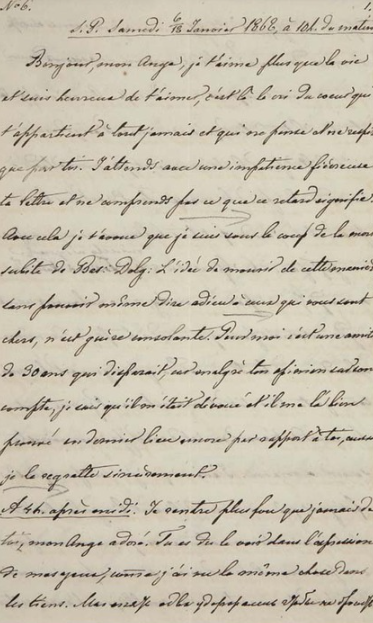 No 6.
1.
S.P. Samedi 6/18 Janvier 1868, à 10h. du matin
Bonjour, mon Ange, je t'aime plus que la vie
et suis heureux de t'aimer, c'est là le cri du coeur qui
t'appartient à tout jamais et qui ne pense et ne respire
que par toi. J'attends avec une impatience fiévreuse
ta lettre et ne comprends pas ce que ce retard signifie.
Avec cela je t'avoue que je suis sous le coup de la mort
subite de Bas: Dolg: L'idée de mourir de cette manière
sans pouvoir même dire adieu à ceux qui vous sont
chers, n'est guère consolante. Pour moi c'est une amitié
de 30 ans qui disparait, car malgré ton opinion sur son
compte, je sais qu'il m'était dévoué et il me l'a bien
prouvé en dernier lieu encore par rapport à toi, aussi
je le regrette sincèrement.
A 4h. après midi: Je rentre plus fou que jamais de
toi, mon Ange adoré. Tu as dû le voir dans l'expression
de mes yeux, comme j'ai vu la même chose dans
les tiens. Mais